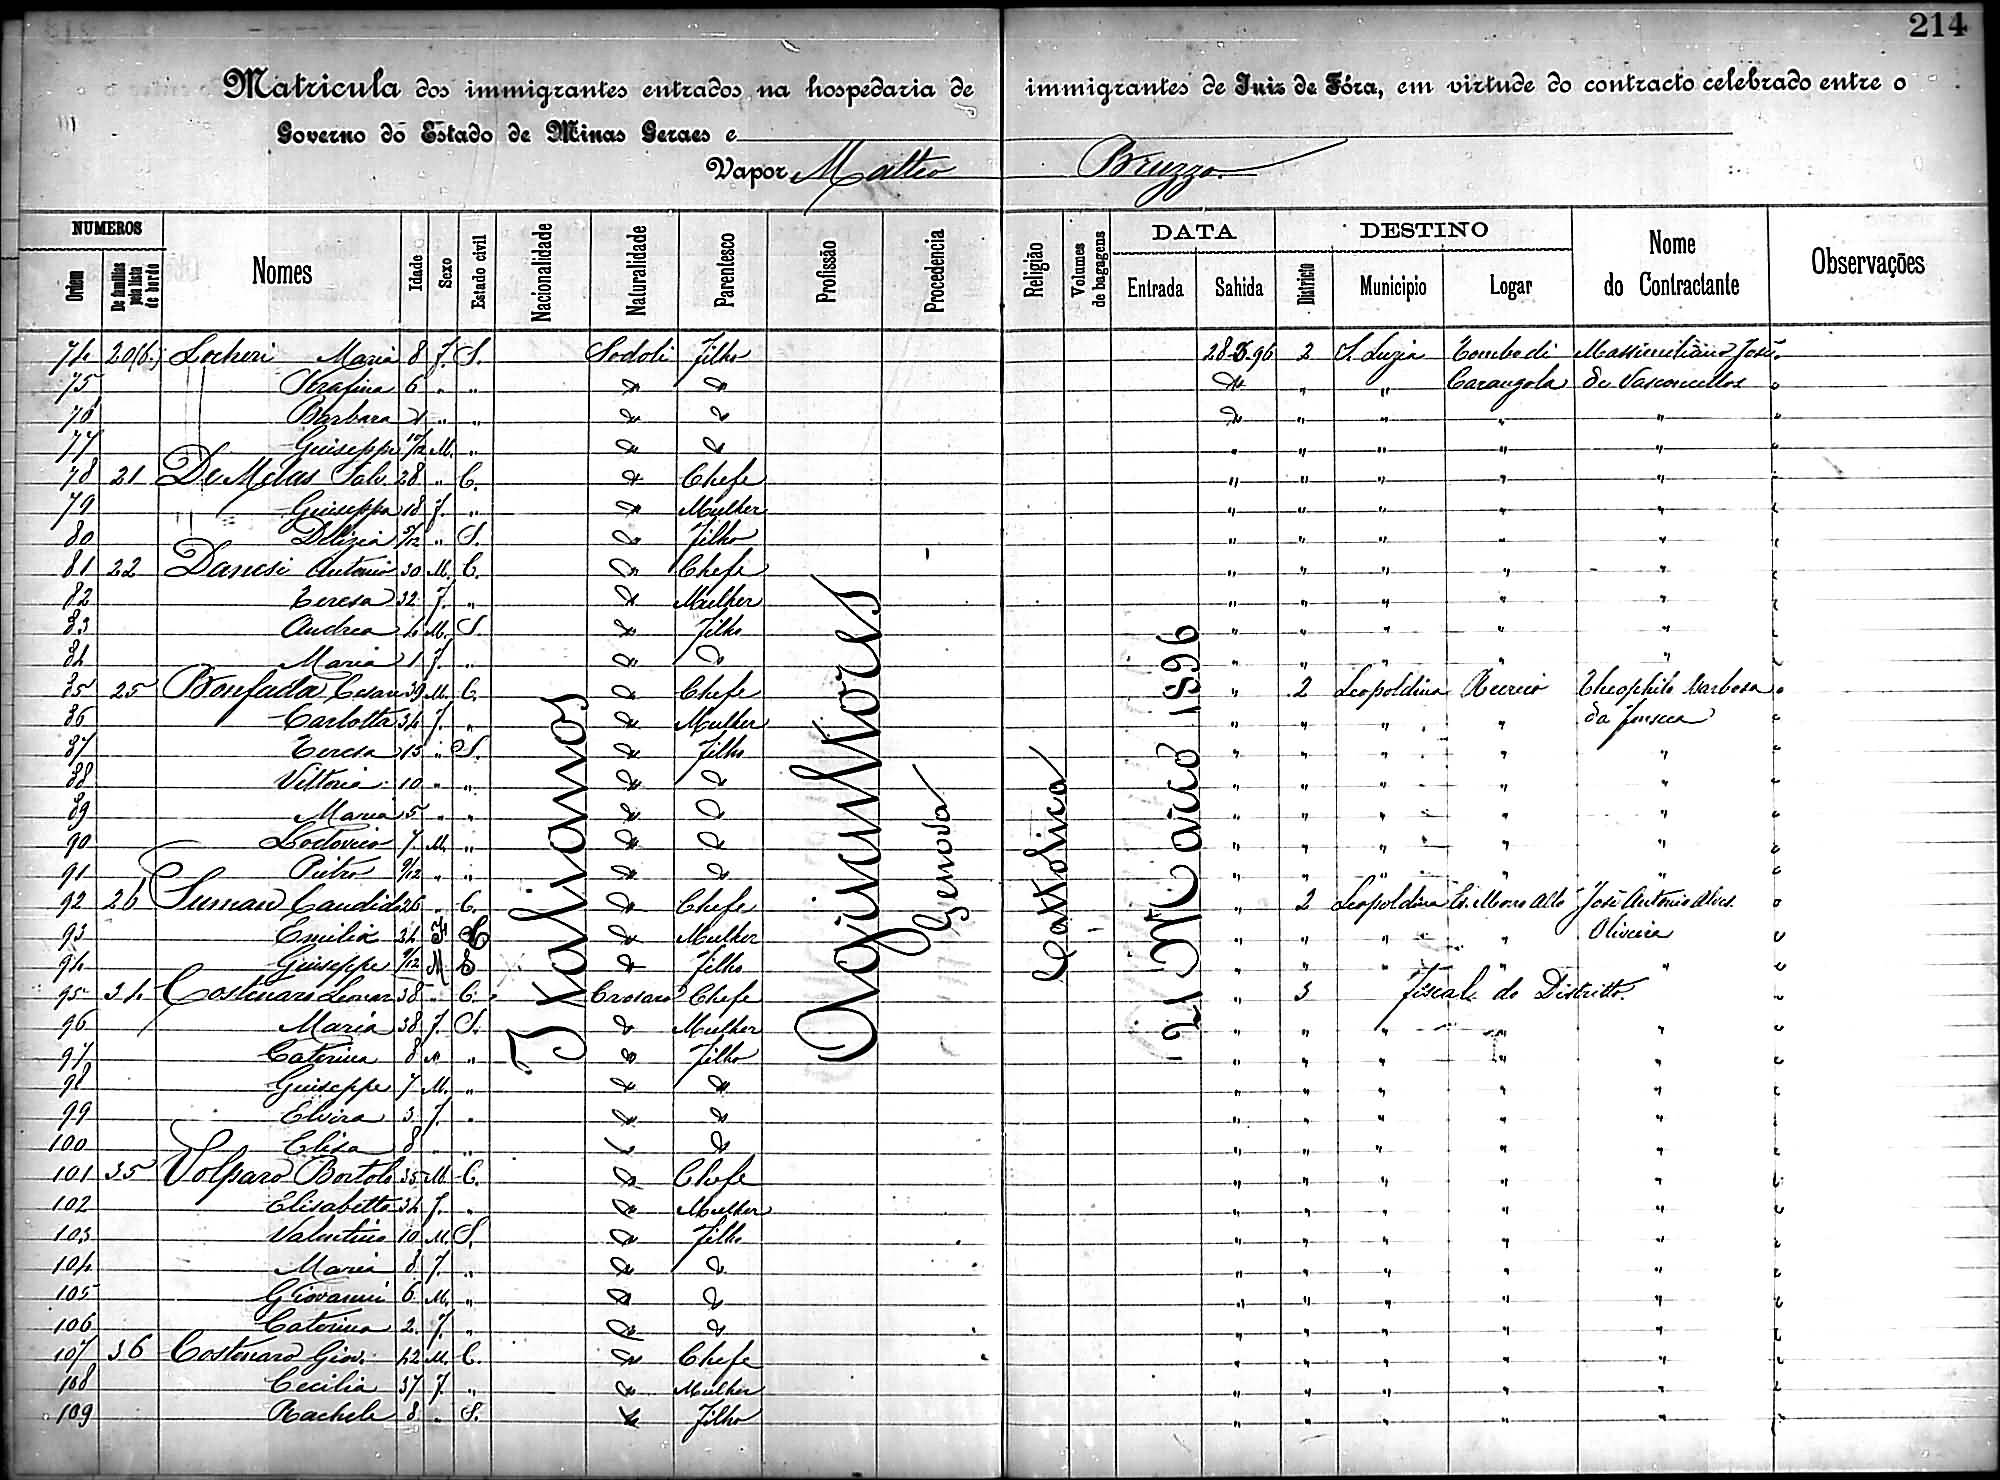 214
Matricula dos immigrantes entrados na hospedaria de immigrantes de Juiz de Fóra, em virtude do contracto celebrado entre o
Governo do Estado de Minas Geraes e
Vapor Matteo Bruzzo
NUMEROS DATA DESTINO
Ordem De familias pela lista de bordo Nomes Idade Sexo Estado civil Nacionalidade Naturalidade Parentesco Profissão Procedencia Religião Volumes de bagagens Entrada Sahida Districto Municipio Logar Nome do Contractante Observações
Italianos
Agricultores
Genova
Cattolica
21 Março 1896
74 20(b.) Locheri Maria 8 F. S. Sodoli Filho 28-3-96 2 S. Luzia Tombo di Massimiliano José
75 Serafina 6 " " D D D " " Carangola de Vasconcellos
76 Barbara 2 " " D D D " " " "
77 Guiseppe 10/12 M. " D D " " " " "
78 21 De Melas Salv. 28 " C. D Chefe " " " " "
79 Guiseppa 18 F. " D Mulher " " " " "
80 Delizia 5/12 " S. D Filho " " " " "
81 22 Danesi Antonio 30 M. C. D Chefe " " " " "
82 Teresa 32 F. " D Mulher " " " " "
83 Andrea 4 M. S. D Filho " " " " "
84 Maria 1 F. " D D " " " " "
85 25 Bonfada Cesare 39 M. C. D Chefe " 2 Leopoldina Recreio Theophilo Barbosa
86 Carlotta 34 F. " D Mulher " " " " da Fonseca
87 Teresa 15 " S. D Filho " " " " "
88 Vittoria 10 " " D D " " " " "
89 Maria 5 " " D D " " " " "
90 Lodovico 7 M. " D D " " " " "
91 Pietro 9/12 " " D D " " " " "
92 26 Suman Candido 26 " C. D Chefe " 2 Leopoldina Es. Morro Alto José Antonio Alves
93 Emilia 24 F C D Mulher " " " " Oliveira
94 Guiseppe 9/12 M S D Filho " " " " "
95 34 Costenaro Leonar 38 " C. Crosara Chefe " 3 Fiscal do Districto.
96 Maria 38 F. S. D Mulher " " " " "
97 Caterina 8 " " D Filho " " " " "
98 Guiseppe 7 M. " D D " " " " "
99 Elvira 3 F. " D D " " " " "
100 Elisa 8 " " D D " " " " "
101 35 Volparo Bortolo 35 M C. D Chefe " " " " "
102 Elisabetta 34 F. " D Mulher " " " " "
103 Valentino 10 M. S. D Filho " " " " "
104 Maria 8 F. " D D " " " " "
105 Giovanni 6 M. " D D " " " " "
106 Caterina 2 F. " D D " " " " "
107 36 Costenaro Giov. 42 M. C. D Chefe " " " " "
108 Cecilia 37 F. " D Mulher " " " " "
109 Rachele 8 " S. D Filho " " " " "